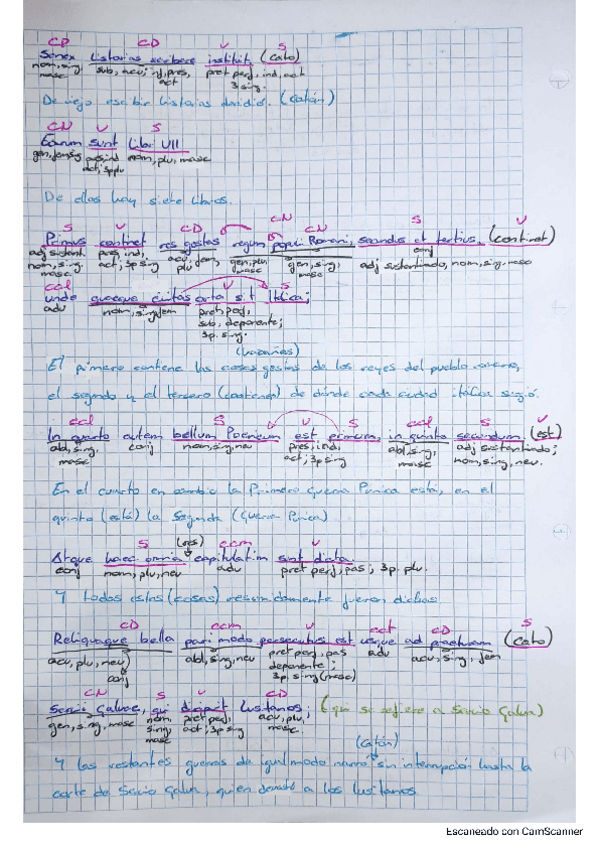 CP CD V S
Senex historias scribere instituit (Cato)
nom, sing, masc sub, acu, inf, pres, act pret perf, ind, act 3 sing.
De viejo escribir historias decidió. (Catón)
CN V S
Earum sunt libri VII
gen, fem, pres, ind act; 3p plu nom, plu, masc
De ellos hay siete libros.
S V CD CN CN S V
Primus continet res gestas regum populi Romani, secundus et tertius, (continet)
adj sustant. nom, sing, masc pres, ind, act; 3p sing acu, fem, plu gen, plu, masc gen, sing, masc conj adj sustantivado, nom, sing, masc
ccl V S
unde quaeque civitas orta sit Italica;
adv nom, sing, fem pret perf, sub, deponente; 3p. sing.
(hazañas)
El primero contiene las cosas gestas de los reyes del pueblo romano,
el segundo y el tercero (contienen) de dónde cada ciudad itálica surgió.
ccl S V S ccl S V
In quarto autem bellum Poenicum est primum, in quinto secundum. (est)
abl, sing, masc conj nom, sing, neu pres, ind, act; 3p sing abl, sing, masc adj sustantivado; nom, sing, neu.
En el cuarto en cambio la Primera Guerra Púnica está, en el
quinto (está) la Segunda (Guerra Púnica)
S (res) ccm V
Atque haec omnia capitulatim sunt dicta.
conj nom, plu, neu adv pret perf, pas; 3p. plu.
Y todas estas (cosas) resumidamente fueron dichas
CD ccm V cct CD S
Reliquaque bella pari modo persecutus est usque ad praeturam (Cato)
acu, plu, neu conj abl, sing, neu pret perf, pas deponente; 3p. sing (masc) adv acu, sing, fem
CN S V CD
Servii Galbae, qui diripuit Lusitanos; (qui se refiere a Servio Galba)
gen, sing, masc nom, sing, masc pret perf, act; 3p sing acu, plu, masc.
(Catón)
Y las restantes guerras de igual modo narró sin interrupción hasta la
de Servio Galba, quien a los lusitanos.
Escaneado con CamScanner